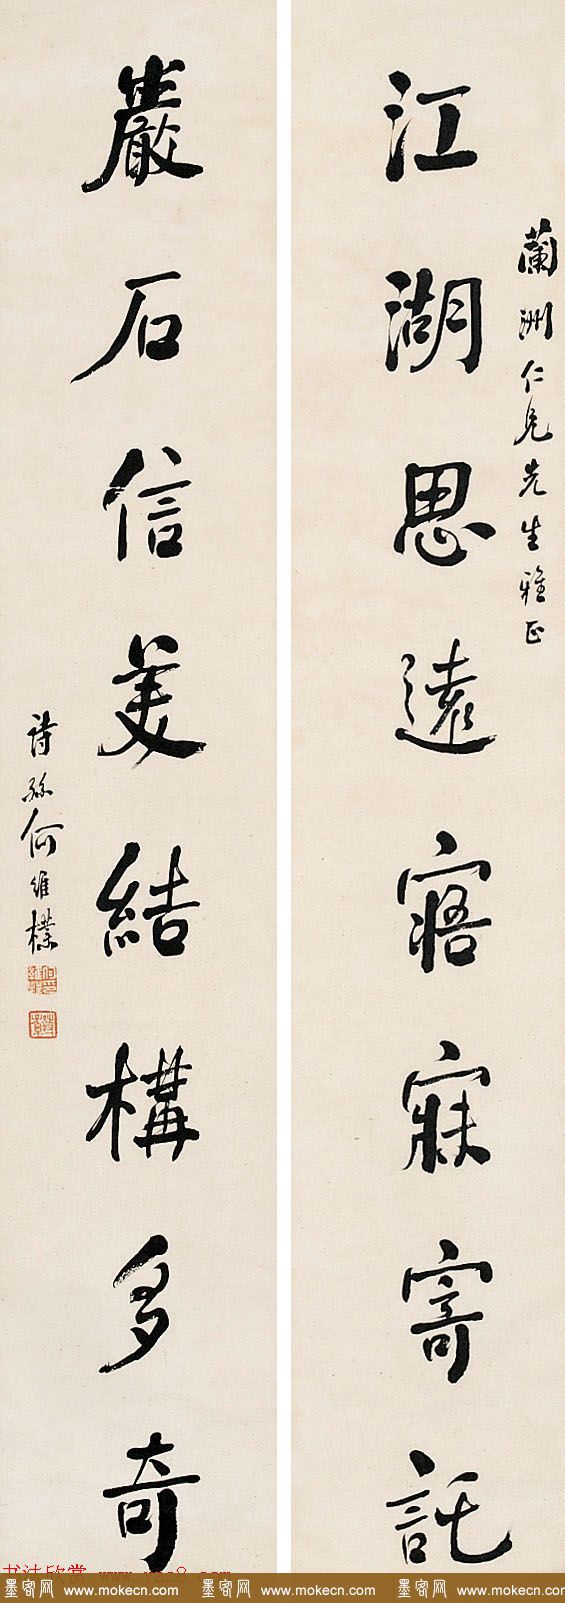 蘭洲仁兄先生雅正
江湖思遠寤寐寄託
巖石信美結構多奇
詩孫何維樸
书法欣赏 www.yac8.com
墨客网 www.mokecn.com 墨客网 www.mokecn.com 墨客网 www.mokecn.com